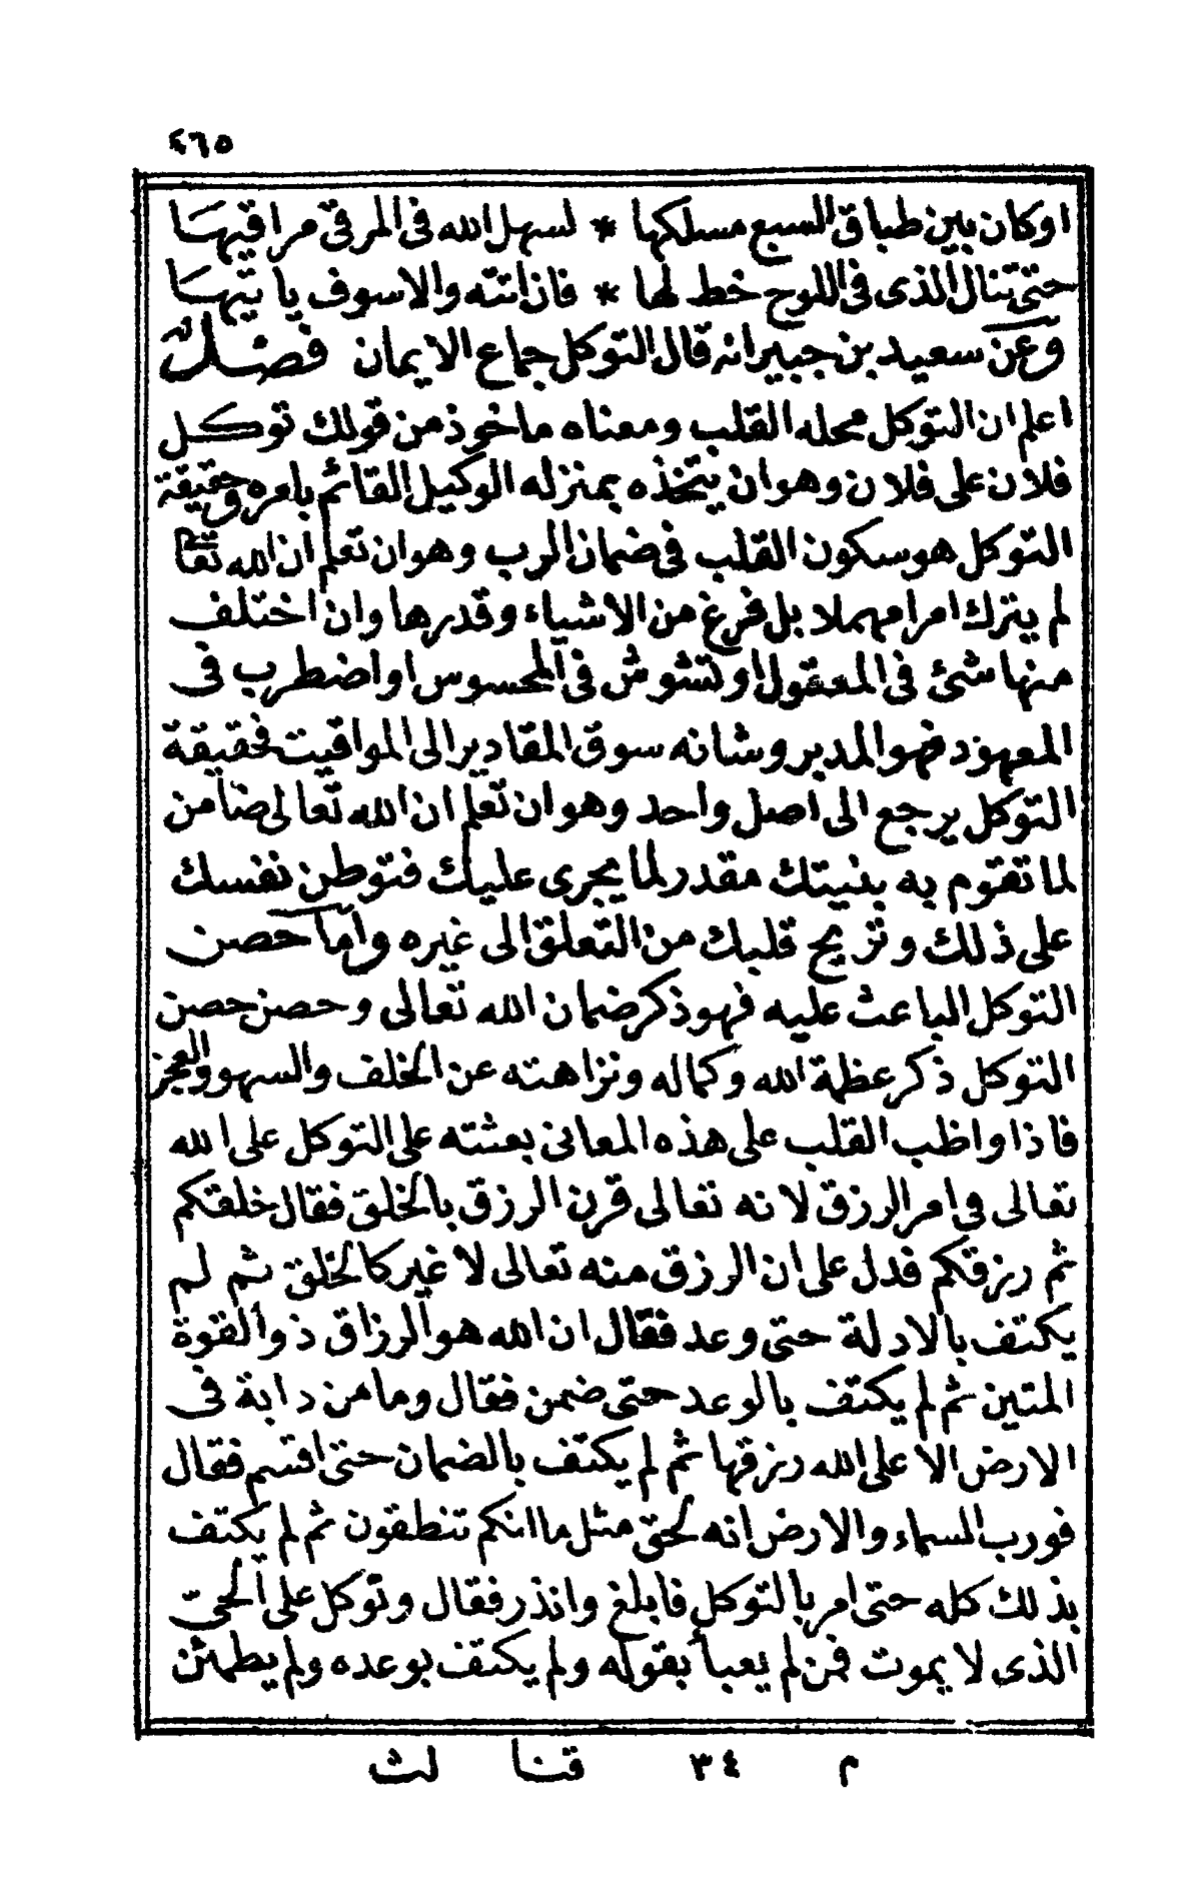 ٤٦٥
اوكان بين طباق السبع مسلكها * لسهل الله فى المرقى مراقيها
حتى تنال الذى فى اللوح خط لها * فان اتته والا سوف ياتيها
وعن سعيد بن جبير انه قال التوكل جماع الايمان فصل
اعلم ان التوكل محله القلب ومعناه ماخوذ من قولك توكل
فلان على فلان وهو ان يتخذه بمنزله الوكيل القائم بامره وحقيقة
التوكل هو سكون القلب فى ضمان الرب وهو ان تعلم ان الله تعا
لم يترك امرا مهملا بل فرغ من الاشياء وقدرها وان اختلف
منها شئ فى المعقول او تشوش فى المحسوس او اضطرب فى
المعهود فهو المدبر وشانه سوق المقادير الى المواقيت فحقيقة
التوكل يرجع الى اصل واحد وهو ان تعلم ان الله تعالى ضامن
لما تقوم به بنيتك مقدر لما يجرى عليك فتوطن نفسك
على ذلك وتزيح قلبك من التعلق الى غيره واما حصن
التوكل الباعث عليه فهو ذكر ضمان الله تعالى وحصن حصن
التوكل ذكر عظمة الله وكماله ونزاهته عن الخلف والسهو والعجز
فاذا واظب القلب على هذه المعانى بعثته على التوكل على الله
تعالى فى امر الرزق لانه تعالى قرن الرزق بالخلق فقال خلقكم
ثم رزقكم فدل على ان الرزق منه تعالى لا غير كالخلق ثم لم
يكتف بالادلة حتى وعد فقال ان الله هو الرزاق ذو القوة
المتين ثم لم يكتف بالوعد حتى ضمن فقال وما من دابة فى
الارض الا على الله رزقها ثم لم يكتف بالضمان حتى اقسم فقال
فورب السماء والارض انه لحق مثل ما انكم تنطقون ثم لم يكتف
بذلك كله حتى امر بالتوكل فابلغ وانذر فقال وتوكل على الحىّ
الذى لا يموت فمن لم يعبأ بقوله ولم يكتف بوعده ولم يطمئن
م ٣٤ قنا لث